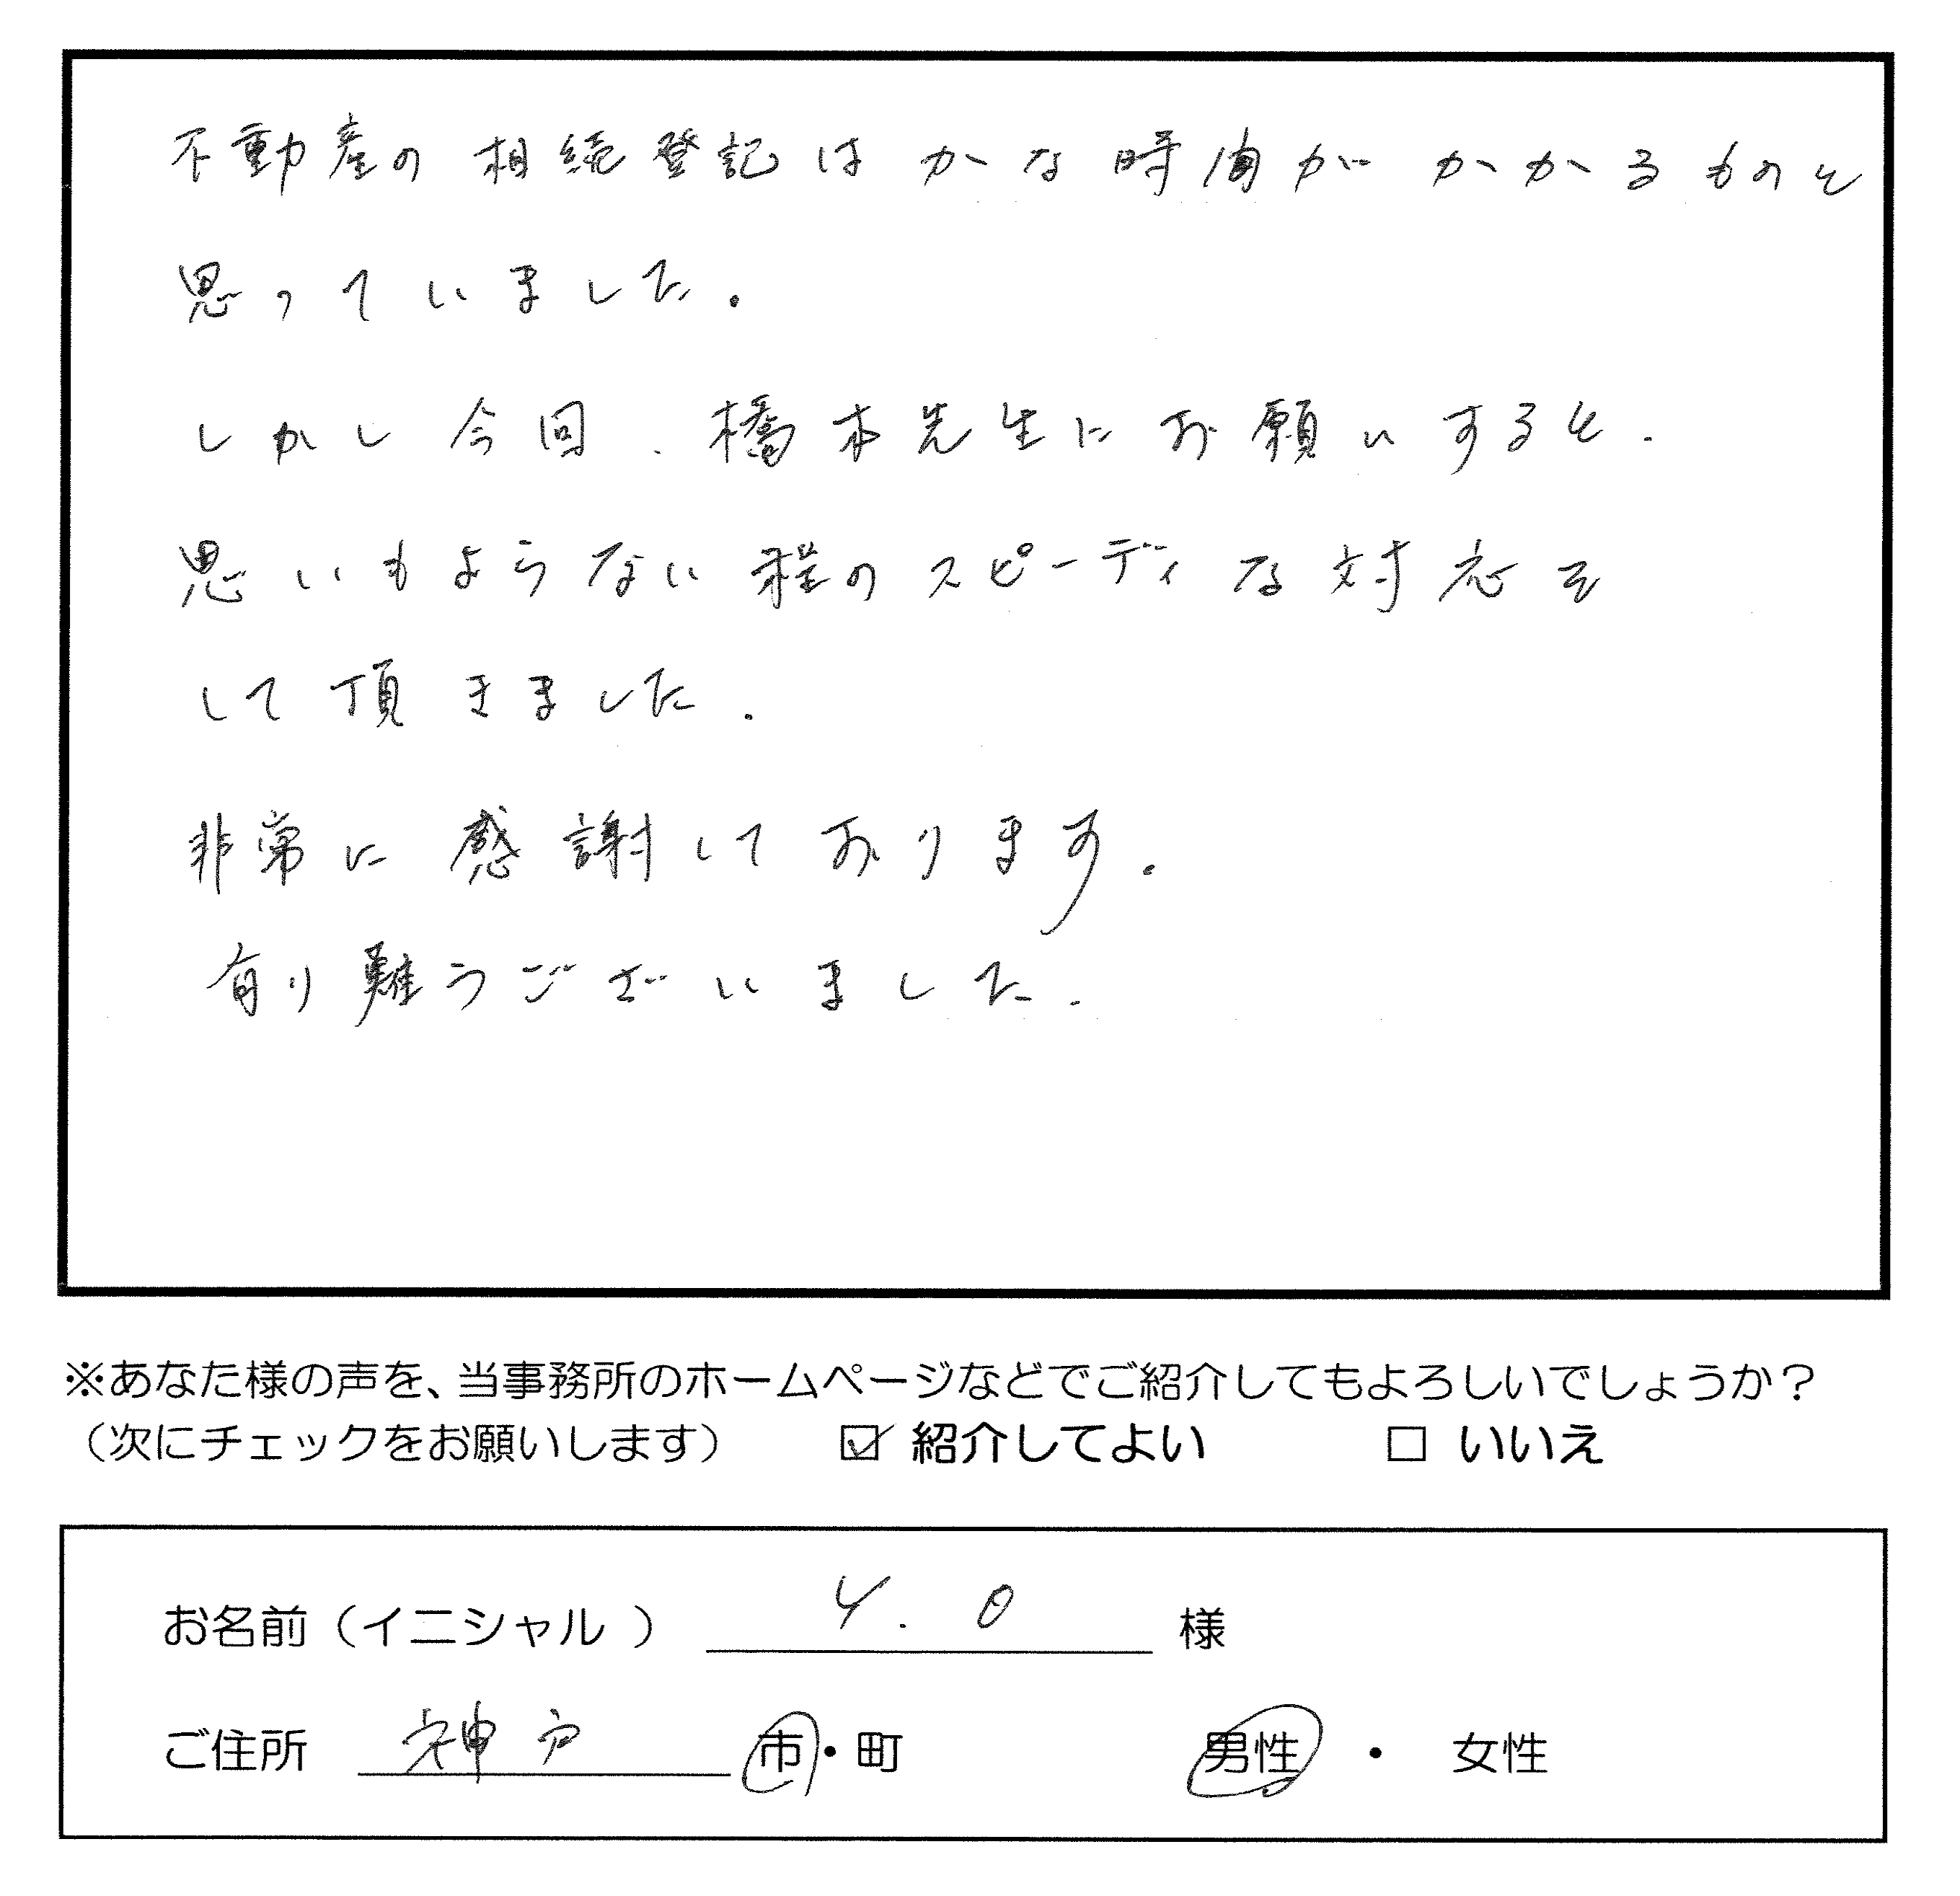 不動産の相続登記はかな時間がかかるものと
思っていました。
しかし今回、橋本先生にお願いすると、
思いもようない程のスピーディな対応を
して頂きました。
非常に感謝しております。
有り難うございました。
※あなた様の声を、当事務所のホームページなどでご紹介してもよろしいでしょうか？
（次にチェックをお願いします） ☑ 紹介してよい □ いいえ
お名前（イニシャル ） Y. O 様
ご住所 神戸 市・町 男性 ・ 女性